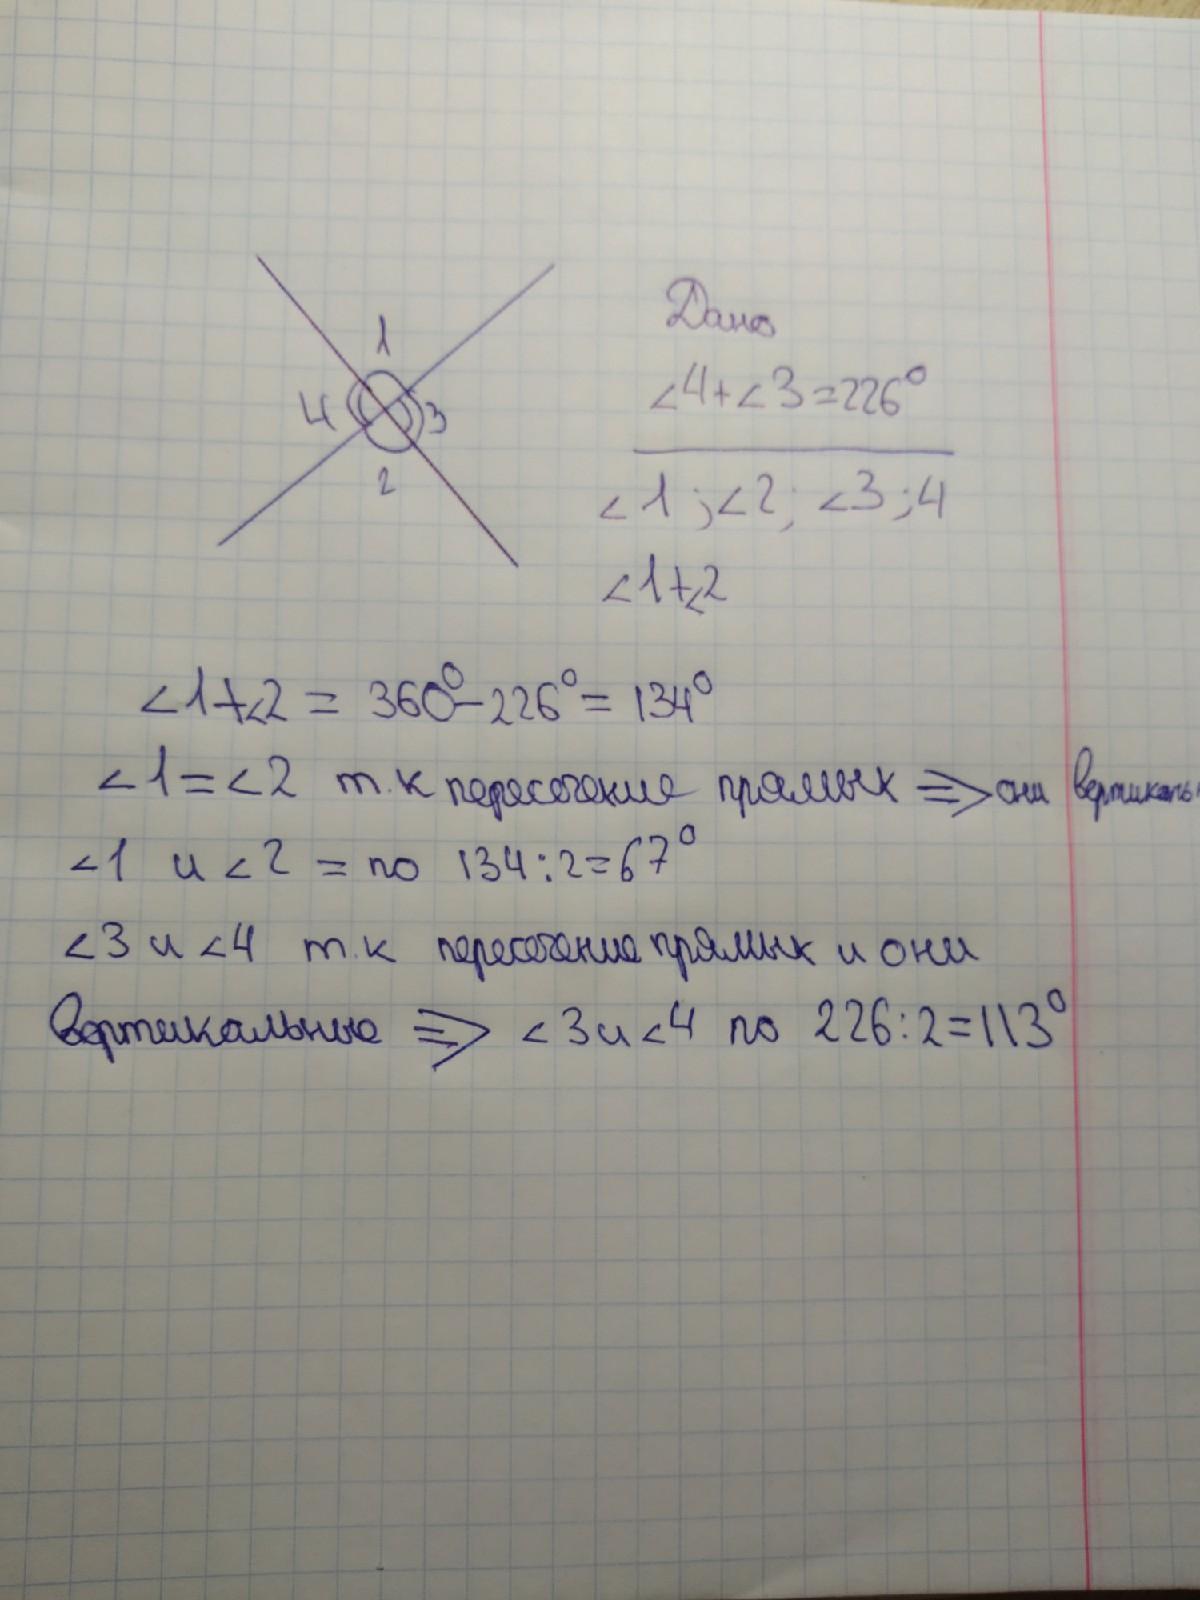 1
4
3
2
Дано
<4+<3=226°
<1;<2; <3;4
<1+<2
<1+<2 = 360°-226°= 134°
<1=<2 т.к пересечение прямых => они вертикальн
<1 и <2 = по 134:2=67°
<3 и <4 т.к пересечение прямых и они
вертикальные => <3 и <4 по 226:2=113°